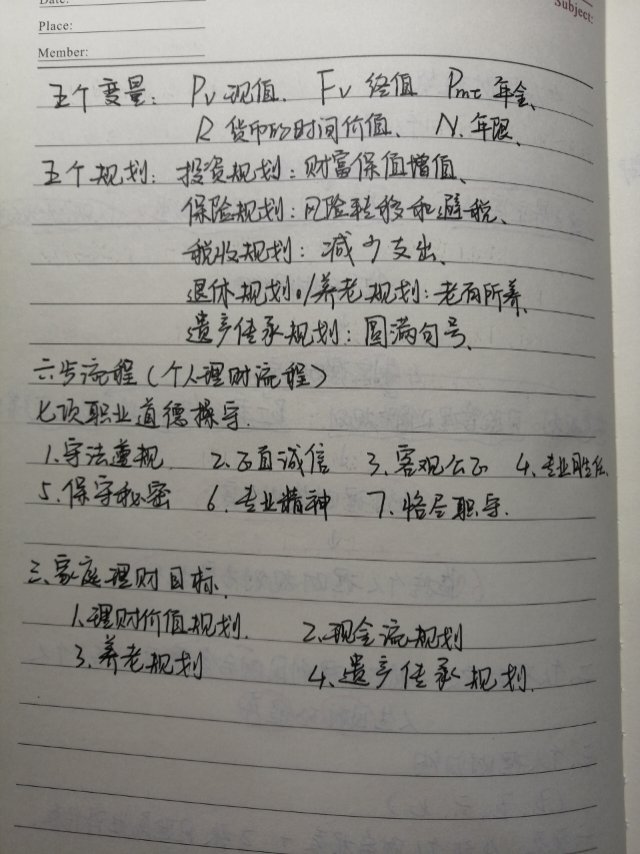 Date:
Subject:
Place:
Member:
五个变量: Pv 现值. Fv 终值 Pmt 年金、
R 货币的时间价值、 N. 年限、
五个规划: 投资规划: 财富保值增值、
保险规划: 风险转移和避税、
税收规划: 减少支出、
退休规划./养老规划: 老有所养、
遗产传承规划: 圆满句号、
六步流程(个人理财流程)
七项职业道德操守.
1.守法遵规 2.正直诚信 3.客观公正 4.专业胜任.
5.保守秘密 6.专业精神 7.恪尽职守.
三.家庭理财目标.
1.理财价值规划. 2.现金流规划
3.养老规划 4.遗产传承规划.